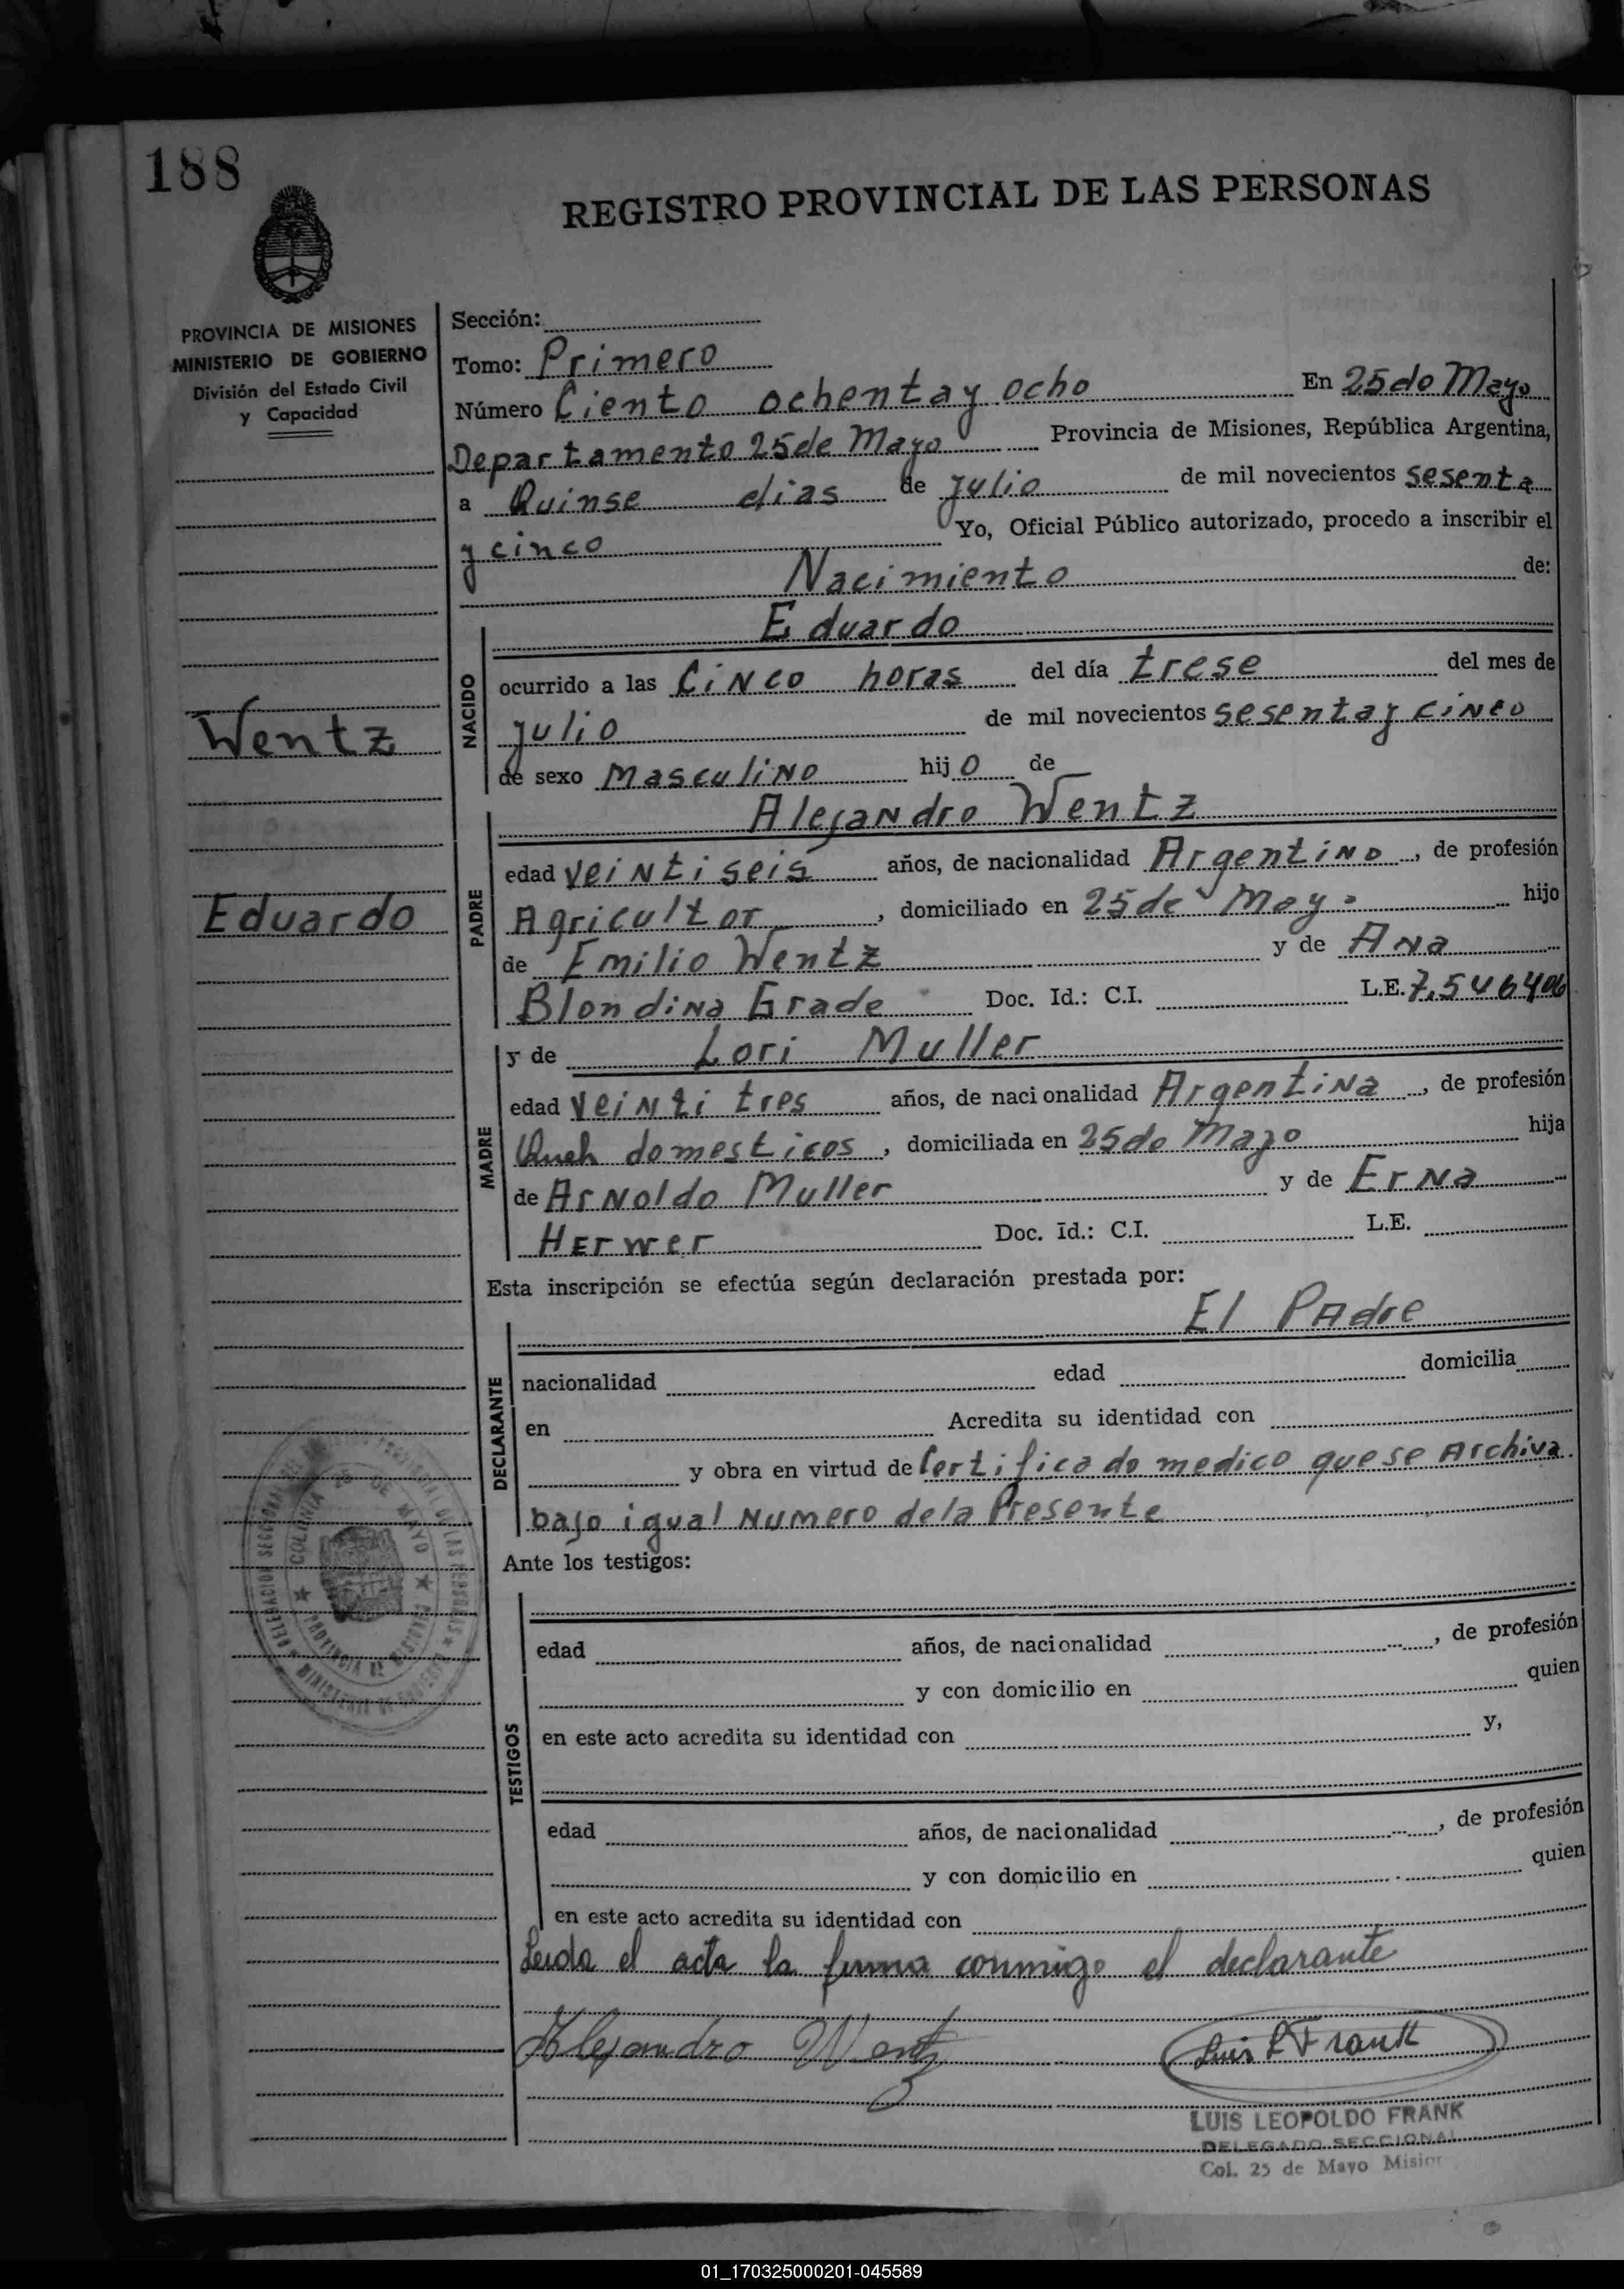 188
REGISTRO PROVINCIAL DE LAS PERSONAS
PROVINCIA DE MISIONES
MINISTERIO DE GOBIERNO
División del Estado Civil
y Capacidad
Wentz
Eduardo
Sección:
Tomo: Primero
Número Ciento ochenta y ocho En 25 de Mayo
Departamento 25 de Mayo Provincia de Misiones, República Argentina,
a Quinse dias de julio de mil novecientos sesenta
y cinco Yo, Oficial Público autorizado, procedo a inscribir el
Nacimiento de:
Eduardo
NACIDO
ocurrido a las Cinco horas del día trese del mes de
julio de mil novecientos sesenta y cinco
de sexo Masculino hijo de
Alejandro Wentz
PADRE
edad veinti seis años, de nacionalidad Argentino, de profesión
Agricultor, domiciliado en 25 de Mayo hijo
de Emilio Wentz y de Ana
Blondina Grade Doc. Id.: C.I. L.E. 7.546406
y de Lori Muller
MADRE
edad veinti tres años, de nacionalidad Argentina, de profesión
domesticos, domiciliada en 25 de Mayo hija
de Arnoldo Muller y de Erna
Herwer Doc. Id.: C.I. L.E.
Esta inscripción se efectúa según declaración prestada por:
El Padre
DECLARANTE
nacionalidad edad domicilia
en Acredita su identidad con
y obra en virtud de Certificado medico que se Archiva
bajo igual Numero de la Presente
Ante los testigos:
TESTIGOS
edad años, de nacionalidad , de profesión
y con domicilio en quien
en este acto acredita su identidad con y,
edad años, de nacionalidad , de profesión
y con domicilio en quien
en este acto acredita su identidad con
Leida el acta la firma conmigo el declarante
Alejandro Wentz Luis L Frank
LUIS LEOPOLDO FRANK
DELEGADO SECCIONAL
Col. 25 de Mayo Misior
COLONIA 25 DE MAYO
PROVINCIA DE MISIONES
01_170325000201-045589